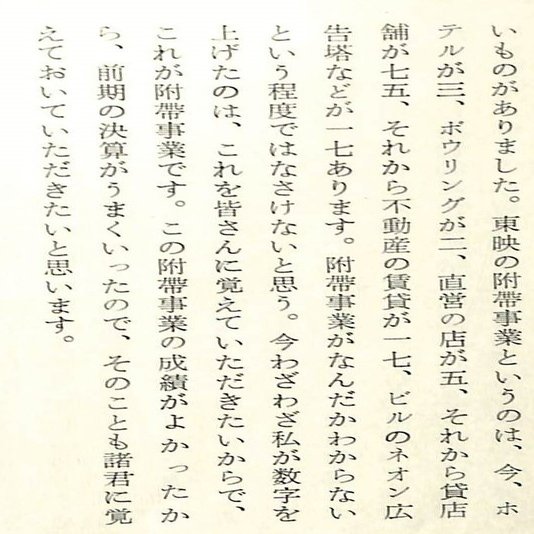 いものがありました。東映の附帶事業というのは、今、ホ
テルが三、ボウリングが二、直営の店が五、それから貸店
舗が七五、それから不動産の賃貸が一七、ビルのネオン広
告塔などが一七あります。附帶事業がなんだかわからない
という程度ではなさけないと思う。今わざわざ私が数字を
上げたのは、これを皆さんに覚えていただきたいからで、
これが附帶事業です。この附帶事業の成績がよかったか
ら、前期の決算がうまくいったので、そのことも諸君に覚
えておいていただきたいと思います。